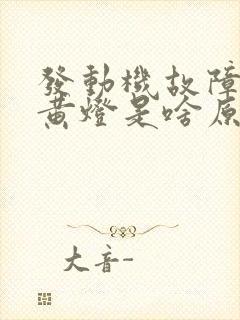 發動機故障
黄燈是啥原
大音-